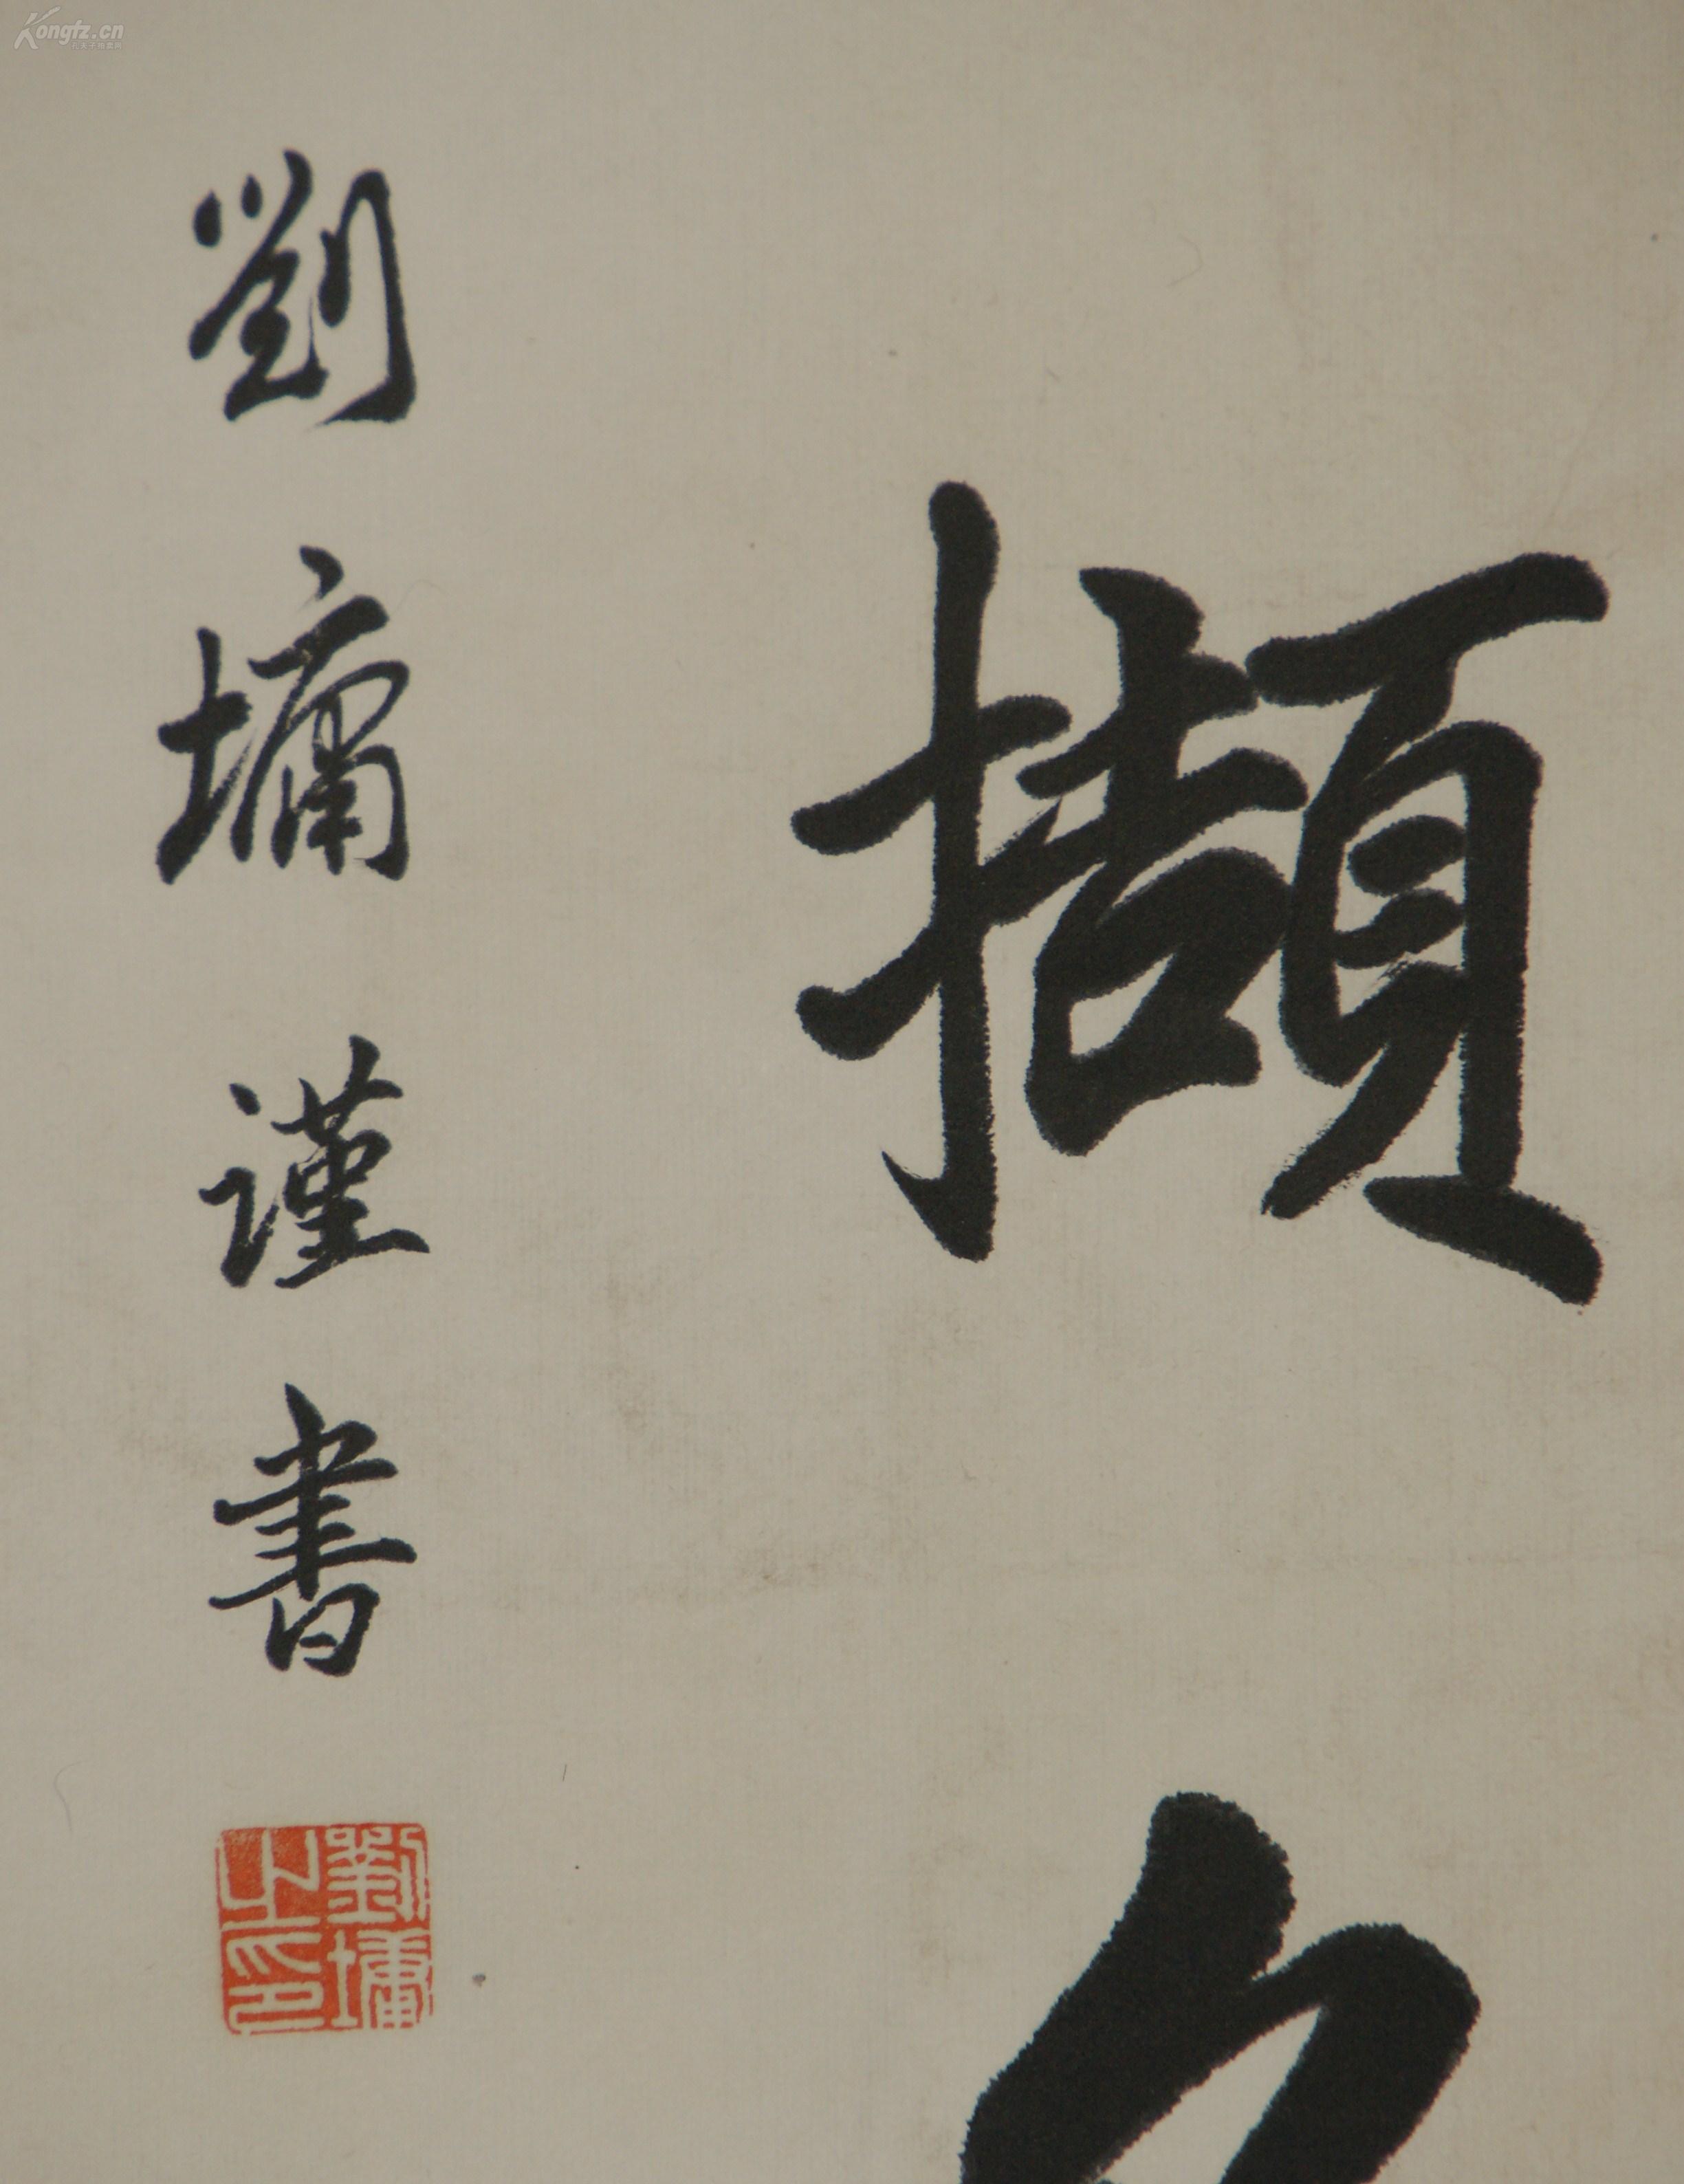 擷
劉墉謹書
劉墉之印
Kongfz.cn